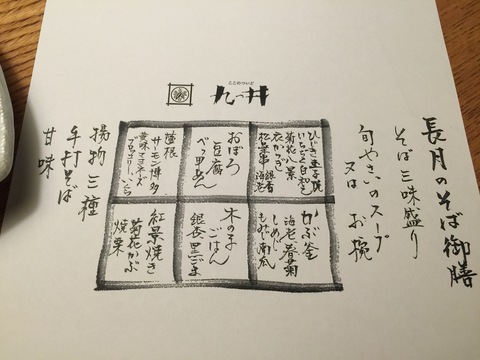 ここのついど
九つ井
長月のそば御膳
そば三味盛り
旬やさいのスープ
又は お椀
ひじき玉子焼
いちじく白和え
衣かつぎ
松葉串 銀杏 海老
おぼろ
豆腐
べっ甲あん
蓮根
サーモン博多
黄味マヨネーズ
ブロッコリー、いくら
かぶ釜
海老 春菊
しめじ
もみじ南瓜
木の子
ごはん
銀杏 黒ごま
焼き
菊花かぶ
焼栗
揚物三種
手打そば
甘味